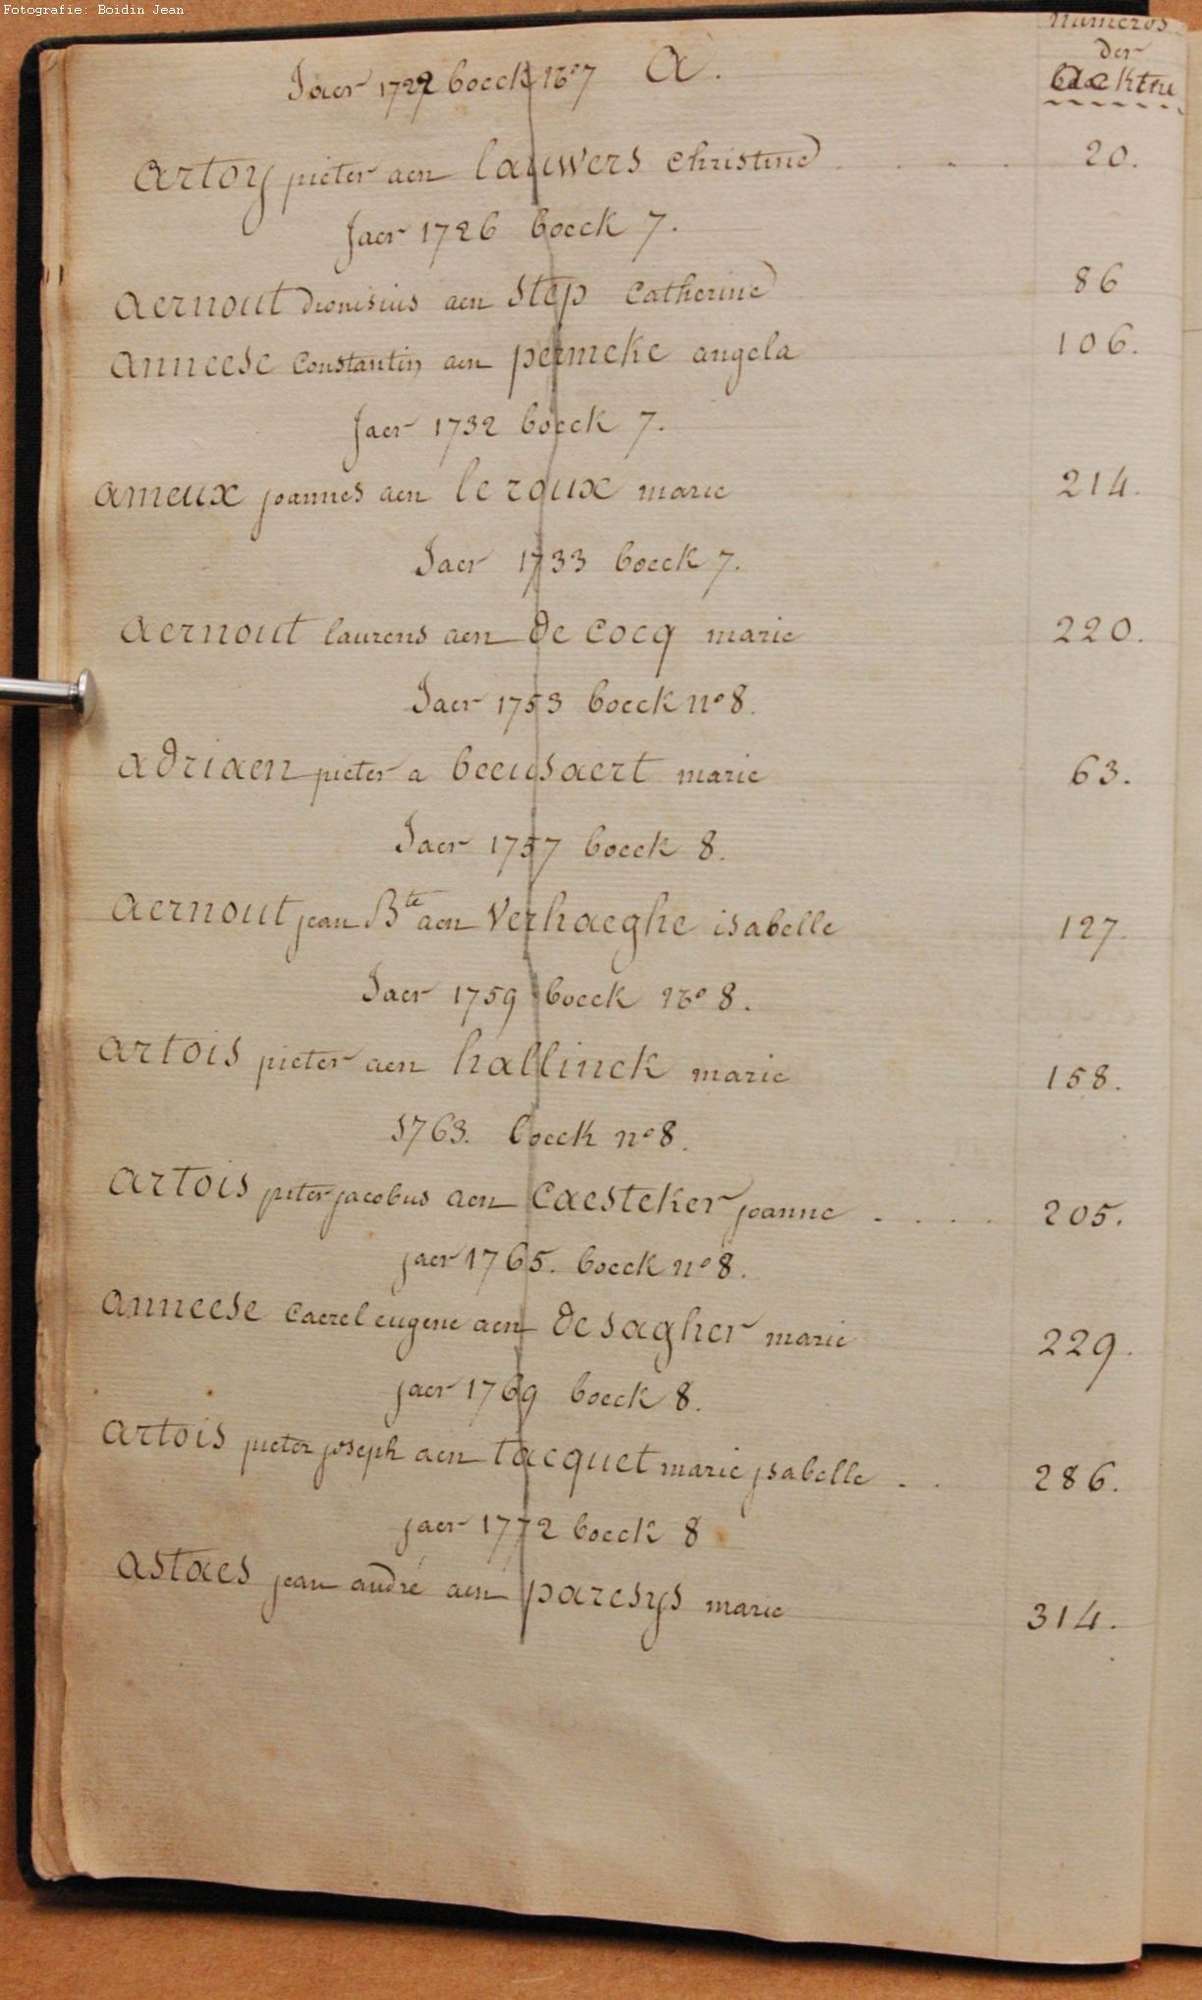 Fotografie: Boidin Jean
numeros
der
Jaer 1722 boeck No 7 A.
artoy pieter aen lauwers christine . . . . 20.
Jaer 1726 boeck 7.
aernout dionisius aen step catherine 86
anneese constantin aen permeke angela 106.
Jaer 1732 boeck 7.
ameux joannes aen le roux marie 214.
Jaer 1733 boeck 7.
aernout laurens aen de cocq marie 220.
Jaer 1753 boeck no 8.
adriaen pieter a beeusaert marie 63.
Jaer 1757 boeck 8.
aernout jean Bte aen Verhaeghe isabelle 127.
Jaer 1759 boeck No 8.
artois pieter aen hallinck marie 158.
1763. boeck no 8.
artois piter jacobus aen Caesteker joanne . . . . 205.
jaer 1765. boeck no 8.
anneese Caerel eugene aen de sagher marie 229.
jaer 1769 boeck 8.
artois pieter joseph aen tacquet marie jsabelle . . 286.
jaer 1772 boeck 8
astaes jean andré aen paresys marie 314.